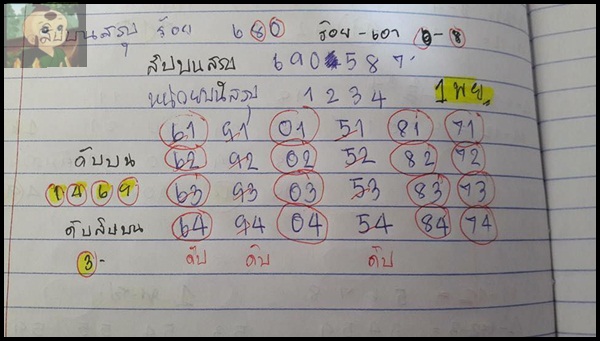 สิบบนสรุป ร้อย 680 ร้อย-เอา 6-8
สิบบนสรุป 690 587
หน่วยบนสรุป 1 2 3 4 1 พย.
61 91 01 51 81 71
ดับบน 62 92 02 52 82 72
1 4 6 9 63 93 03 53 83 73
ดับสิบบน 64 94 04 54 84 74
3- ดับ ดับ ดับ